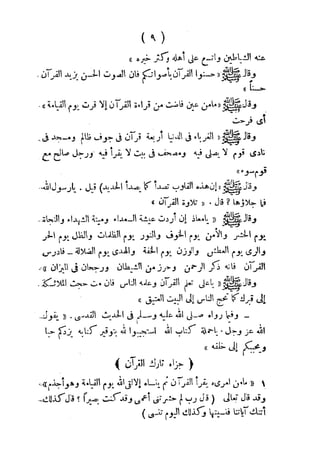 ( ٩ )
عنه الشياطين واتسع على أهله وكثر خيره »
وقال ﷺ « حسنوا القرآن بأصواتكم فان الصوت الحسن يزيد القرآن
حسنا »
وقال ﷺ « مامن عين فاضت من قراءة القرآن إلا قرت يوم القيامة »
أى فرحت
وقال ﷺ « الغرباء فى الدنيا أربعة قرآن فى جوف ظالم ومسجد فى
نادى قوم لا يصلى فيه ومصحف فى بيت لا يقرأ فيه ورجل صالح مع
قوم سوء »
وقال ﷺ « إن هذه القلوب تصدأ كما يصدأ الحديد) قيل . يارسول الله
فما جلاؤها ? قال . « تلاوة القرآن »
وقال ﷺ « يامعاذ إن أردت عيشة السعداء وميتة الشهداء والنجاة
يوم الحشر والأمن يوم الخوف والنور يوم الظلمات والظل يوم الحر
والرى يوم العطش والوزن يوم الخفة والهدى يوم الضلالة – فادرس
القرآن فانه ذكر الرحمن وحرز من الشيطان ورجحان فى الميزان »
وقال ﷺ « ياعلى تعلم القرآن وعلمه الناس فان مت حجت الملائكة
إلى قبرك كما تحج الناس إلى البيت العتيق »
– وفيما رواه صلى الله عليه وسلم فى الحديث القدسى . « يقول
الله عز وجل . ياحملة كتاب الله استحيبوا لله بتوقير كتابه يزدكم حبا
ويحببكم إلى خلقه »
( جزاء تارك القرآن )
١ « مامن امرىء يقرأ القرآن ثم ينساه إلا لقى الله يوم القيامة وهو أجذم »
وقد قال تعالى ( قال رب لم حشرتنى أعمى وقد كنت بصيراً ؟ قال كذلك
أتتك آياتنا فنسيتها وكذلك اليوم تنسى )